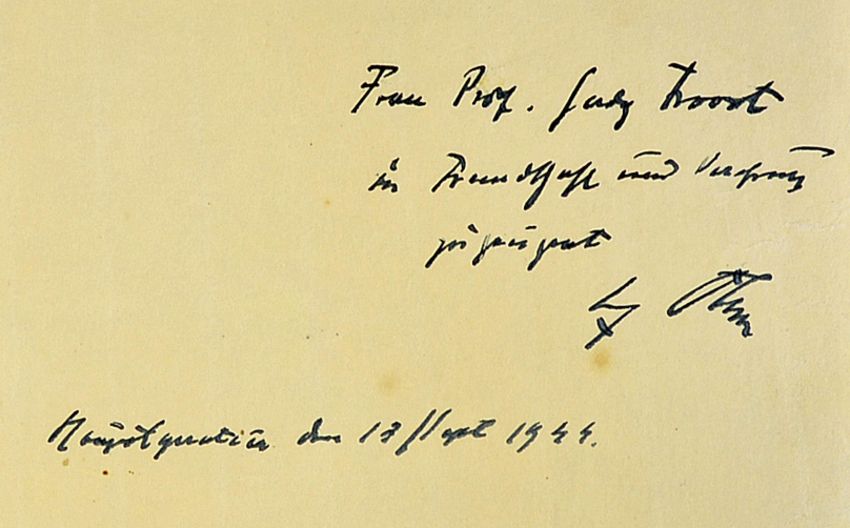 Frau Prof. Gerdy Troost
in Freundschaft und Verehrung
zugeeignet
Hauptquartier den 13 Sept 1944.